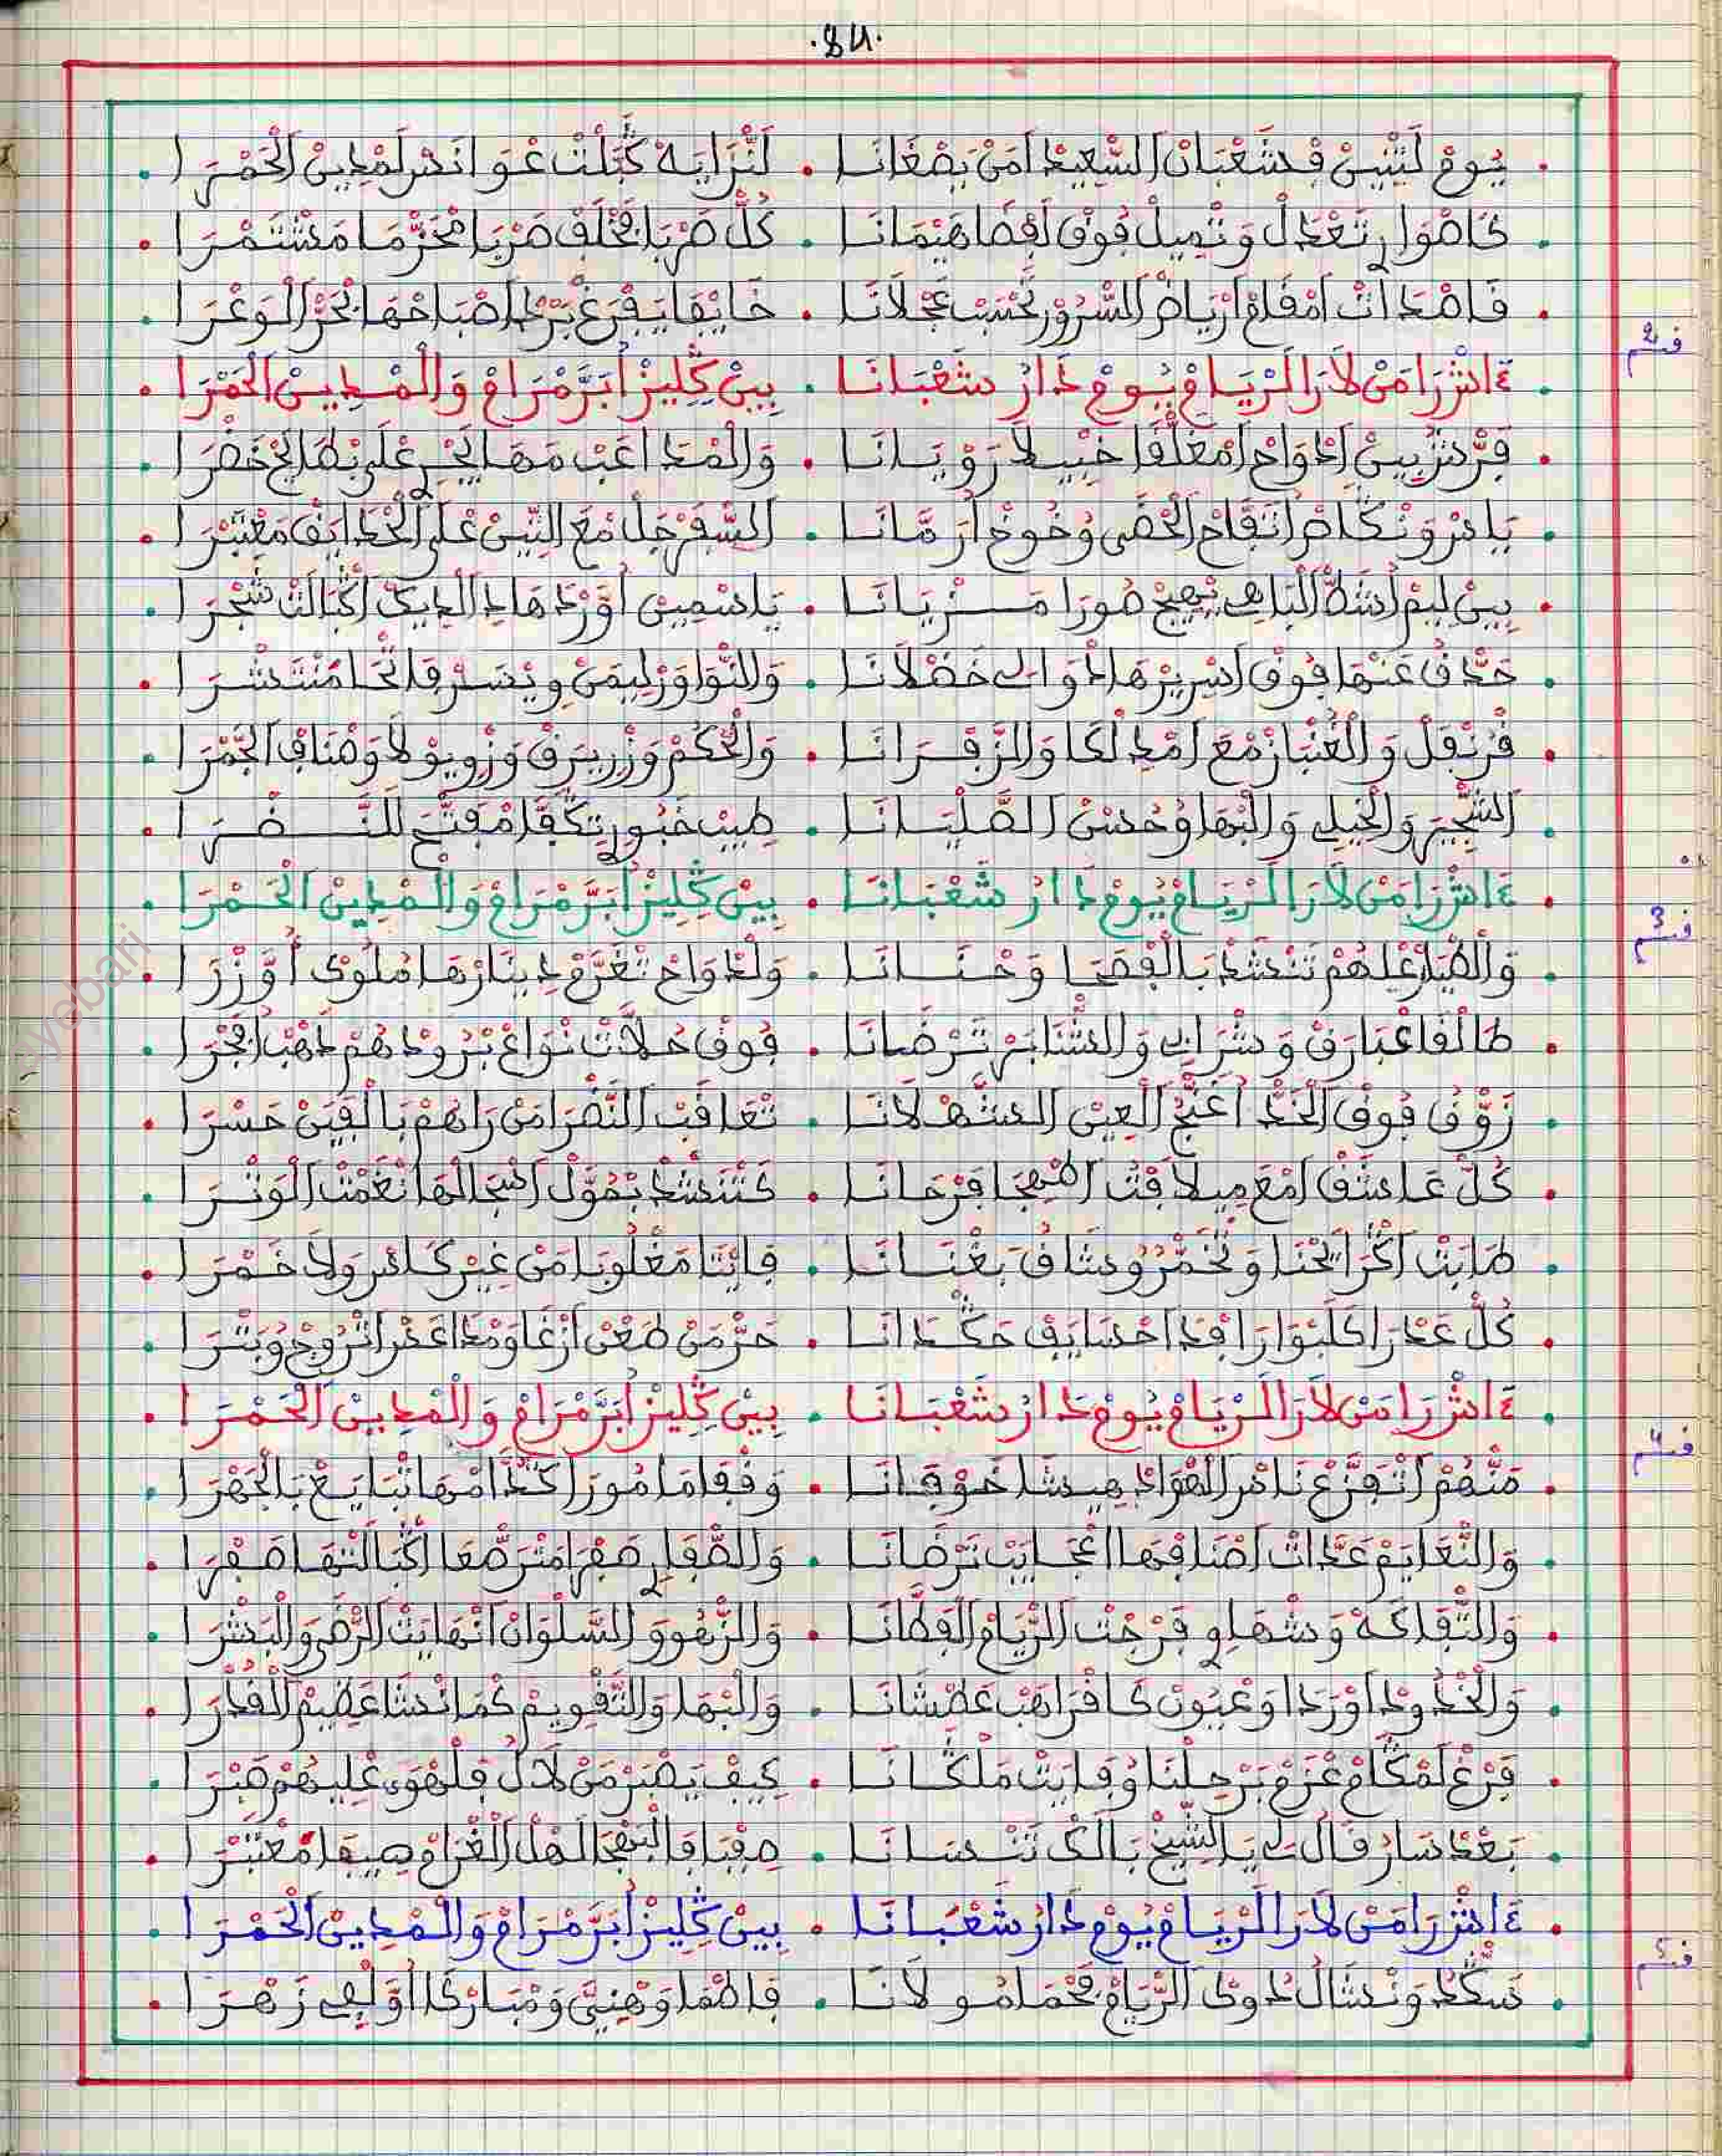 .84.
يُومْ لَثْنِينْ فْشَعْبَانْ السّْعِيدْ امَنْ بَصْغَانَا . لَنْزَايَهْ ڭَبْلَتْ عْوَانَسْ لَمْدِينْ الْحَمْرَا .
طَاصْوَارِ تَعْدَلْ وَتْمِيلْ فُوقْ هَيْمَانَا . كُلّْ ضَرْبَا تْخَلَّفْ ضَرْبَا مْحَزّْمَا مَشْتَمْرَا .
قَاصْدَاتْ امْقَامْ ارْيَاضْ السّْرُورْ تَحْسَبْ عَجْلَانَا . خَايْفَا يَفْرَغْ اصْبَاحْهَا بْحَرّْ الْوَعْرَا .
قسم 2
ءَاشْ رَا مَنْ لَا رَا الرْيَامْ يُومْ دَارْ شَعْبَانَا . بِينْ ڭِلِيزْ أُبَرَّمْرَامْ وَالْمْدِينْ الْحَمْرَا .
بِينْ ادْوَاحْ امْغَلّْقَا رَوْيَانَا . وَالْمْدَاعَبْ مَهَا يَجْرِي عْلَى بْطَايَحْ خَضْرَا .
يَاسْ وَنْكَاصْ أُتَفَّاحْ الْحَضِي وُخُوخْ ارَمَّانَا . السّْفَرْجَلْ مْعَ التِّينْ عْلَى الْحْدَايَقْ مَعْتَبْرَا .
بِينْ لِيمْ اُشَطّْ الْبَاهِي تْهِيجْ صُورَا مَزْيَانَا . يَاسْمِينْ أُوَرْدْ هَادْ الدِيكْ اڭْبَالْتْ شَجْرَا .
حَدّْقْ عَنْهَا فُوقْ اسْرِيرْهَا ادْوَالِي خَضْلَانَا . وَالنّْوَاوَرْ لِيمَنْ وِيْسَرْ فَاتْحَا مَنْتَشْرَا .
قُرْنْفَلْ وَالْعُنْبَازْ مْعَ امْدَلْكَا وَالزَّفْرَانَا . وَالْحْكَمْ وَزْرِيرَقْ وَزْوِيوْلَا وَصْنَافْ الْجَمْرَا .
الشّْجِيرْ وَالْخِيلِي وَالْبْهَا وُحُسْنْ الصَّلْبَانَا . طِيبْ خَبُّورْ تَكْفَا مْفَتَّحْ لَلنَّضْرَا .
قسم 3
ءَاشْ رَا مَنْ لَا رَا الرْيَامْ يُومْ دَارْ شَعْبَانَا . بِينْ ڭِلِيزْ أُبَرَّمْرَامْ وَالْمْدِينْ الْحَمْرَا .
وَالطْيَارْ عْلِيهُمْ تَنْشَدْ بَالْفْصَحَا وَحْنَانَا . وَلْدْوَاحْ تَغْرَمْ دِينَارْهَا مْلُوَّنْ أُوَزْرَا .
طَالْقَا غْبَارَقْ وَشْرَابِي وَالشّْنَابَرْ تَرْضَانَا . فُوقْ حُلَّاتْ نْوَاعْ بْرُودْهُمْ ذَهْبْ ابْحَجْرَا .
زَوَّقْ فُوقْ الْخَدّْ اُغَنْجْ الْعِينْ الشَّهْلَانَا . تْعَاقَبْ النَّضْرَا مَنْ رَاهُمْ بَالْقِينْ حَسْرَا .
كُلّْ عَاشَقْ امْعَ مِيلَافْتْ الْمْهِجَا فَرْحَانَا . كَتْنَشَدْ بَمُوّْلْ اسْجَالْهَا نَغْمْتْ الْوَتْرَا .
طَابْتْ اڭْرَايْحْنَا وَتْخَمّْرُو شَافْ بَغْنَانَا . فَايْتَا مَغْلُوبَا مَنْ غِيرْ كَاسْ وَلَا خَمْرَا .
كُلّْ عَدْرَا ڭَلْبُو رَافْدَا حْسَايَفْ حَڭْدَانَا . حَرّْ مَنْ طَعْنْ ارْغَا وَمْدَاعَسْ اتْرُوجْ وُبَتْرَا .
قسم 4
ءَاشْ رَا مَنْ لَا رَا الرْيَامْ يُومْ دَارْ شَعْبَانَا . بِينْ ڭِلِيزْ أُبَرَّمْرَامْ وَالْمْدِينْ الْحَمْرَا .
مَنّْهُمْ اتْفَزَّعْ نَاسْ الْهْوَا هِيشَا خَوْفَانَا . وَقْفَا مَامُورَا كُدَّامْهَا تْبَايَعْ بَالْجَهْرَا .
وَالنّْعَايَمْ عَدَّاتْ اصْنَافْهَا اعْجَايَبْ تَرْضَانَا . وَالصَّقْلِي صَفْرَا مْتَرّْصْعَا اڭْبَالْتْهَا صَفْرَا .
وَالنّْقَاكَهْ وَشْهَاوِي فَرْجْتْ الرْيَامْ الْفَطَّانَا . وَالزّْهُو وَالسَّلْوَانْ انْهَايَتْ الرّْضَى وَالْبَشْرَا .
وَالْخْدُودْ اوْرَدَا وَعْيُونْ كَافْرَا هَبْ عَطْشَانَا . وَالْبْهَا وَالتَّقْوِيمْ كْمَا نْشَا عَظِيمْ الْقُدْرَا .
فَرْغْ لَمْكَامْ عْزَمْ بَرْحِيلْنَا وُفَايَتْ مَلْڭَانَا . كِيفْ يَصْبَرْ مَنْ لَا لُ فَلْهْوَى عْلِيهُمْ صَبْرَا .
بَعْدْ سَارْ قَالْ لِي يَا الشّْيخْ بَالَكْ تَنْسَانَا . صِفْ بَالْبَهْجَا لَهْلْ الْغْرَامْ صِيفَا مَعْتَبْرَا .
قسم 5
ءَاشْ رَا مَنْ لَا رَا الرْيَامْ يُومْ دَارْ شَعْبَانَا . بِينْ ڭِلِيزْ أُبَرَّمْرَامْ وَالْمْدِينْ الْحَمْرَا .
نَسْڭَدْ وَنْشَالْ دُوكْ الرْيَامْ مُولَانَا . فَاطْمَا وَهْنِيَّ وَمْبَارْكَا أُوَلْفِي زَهْرَا .